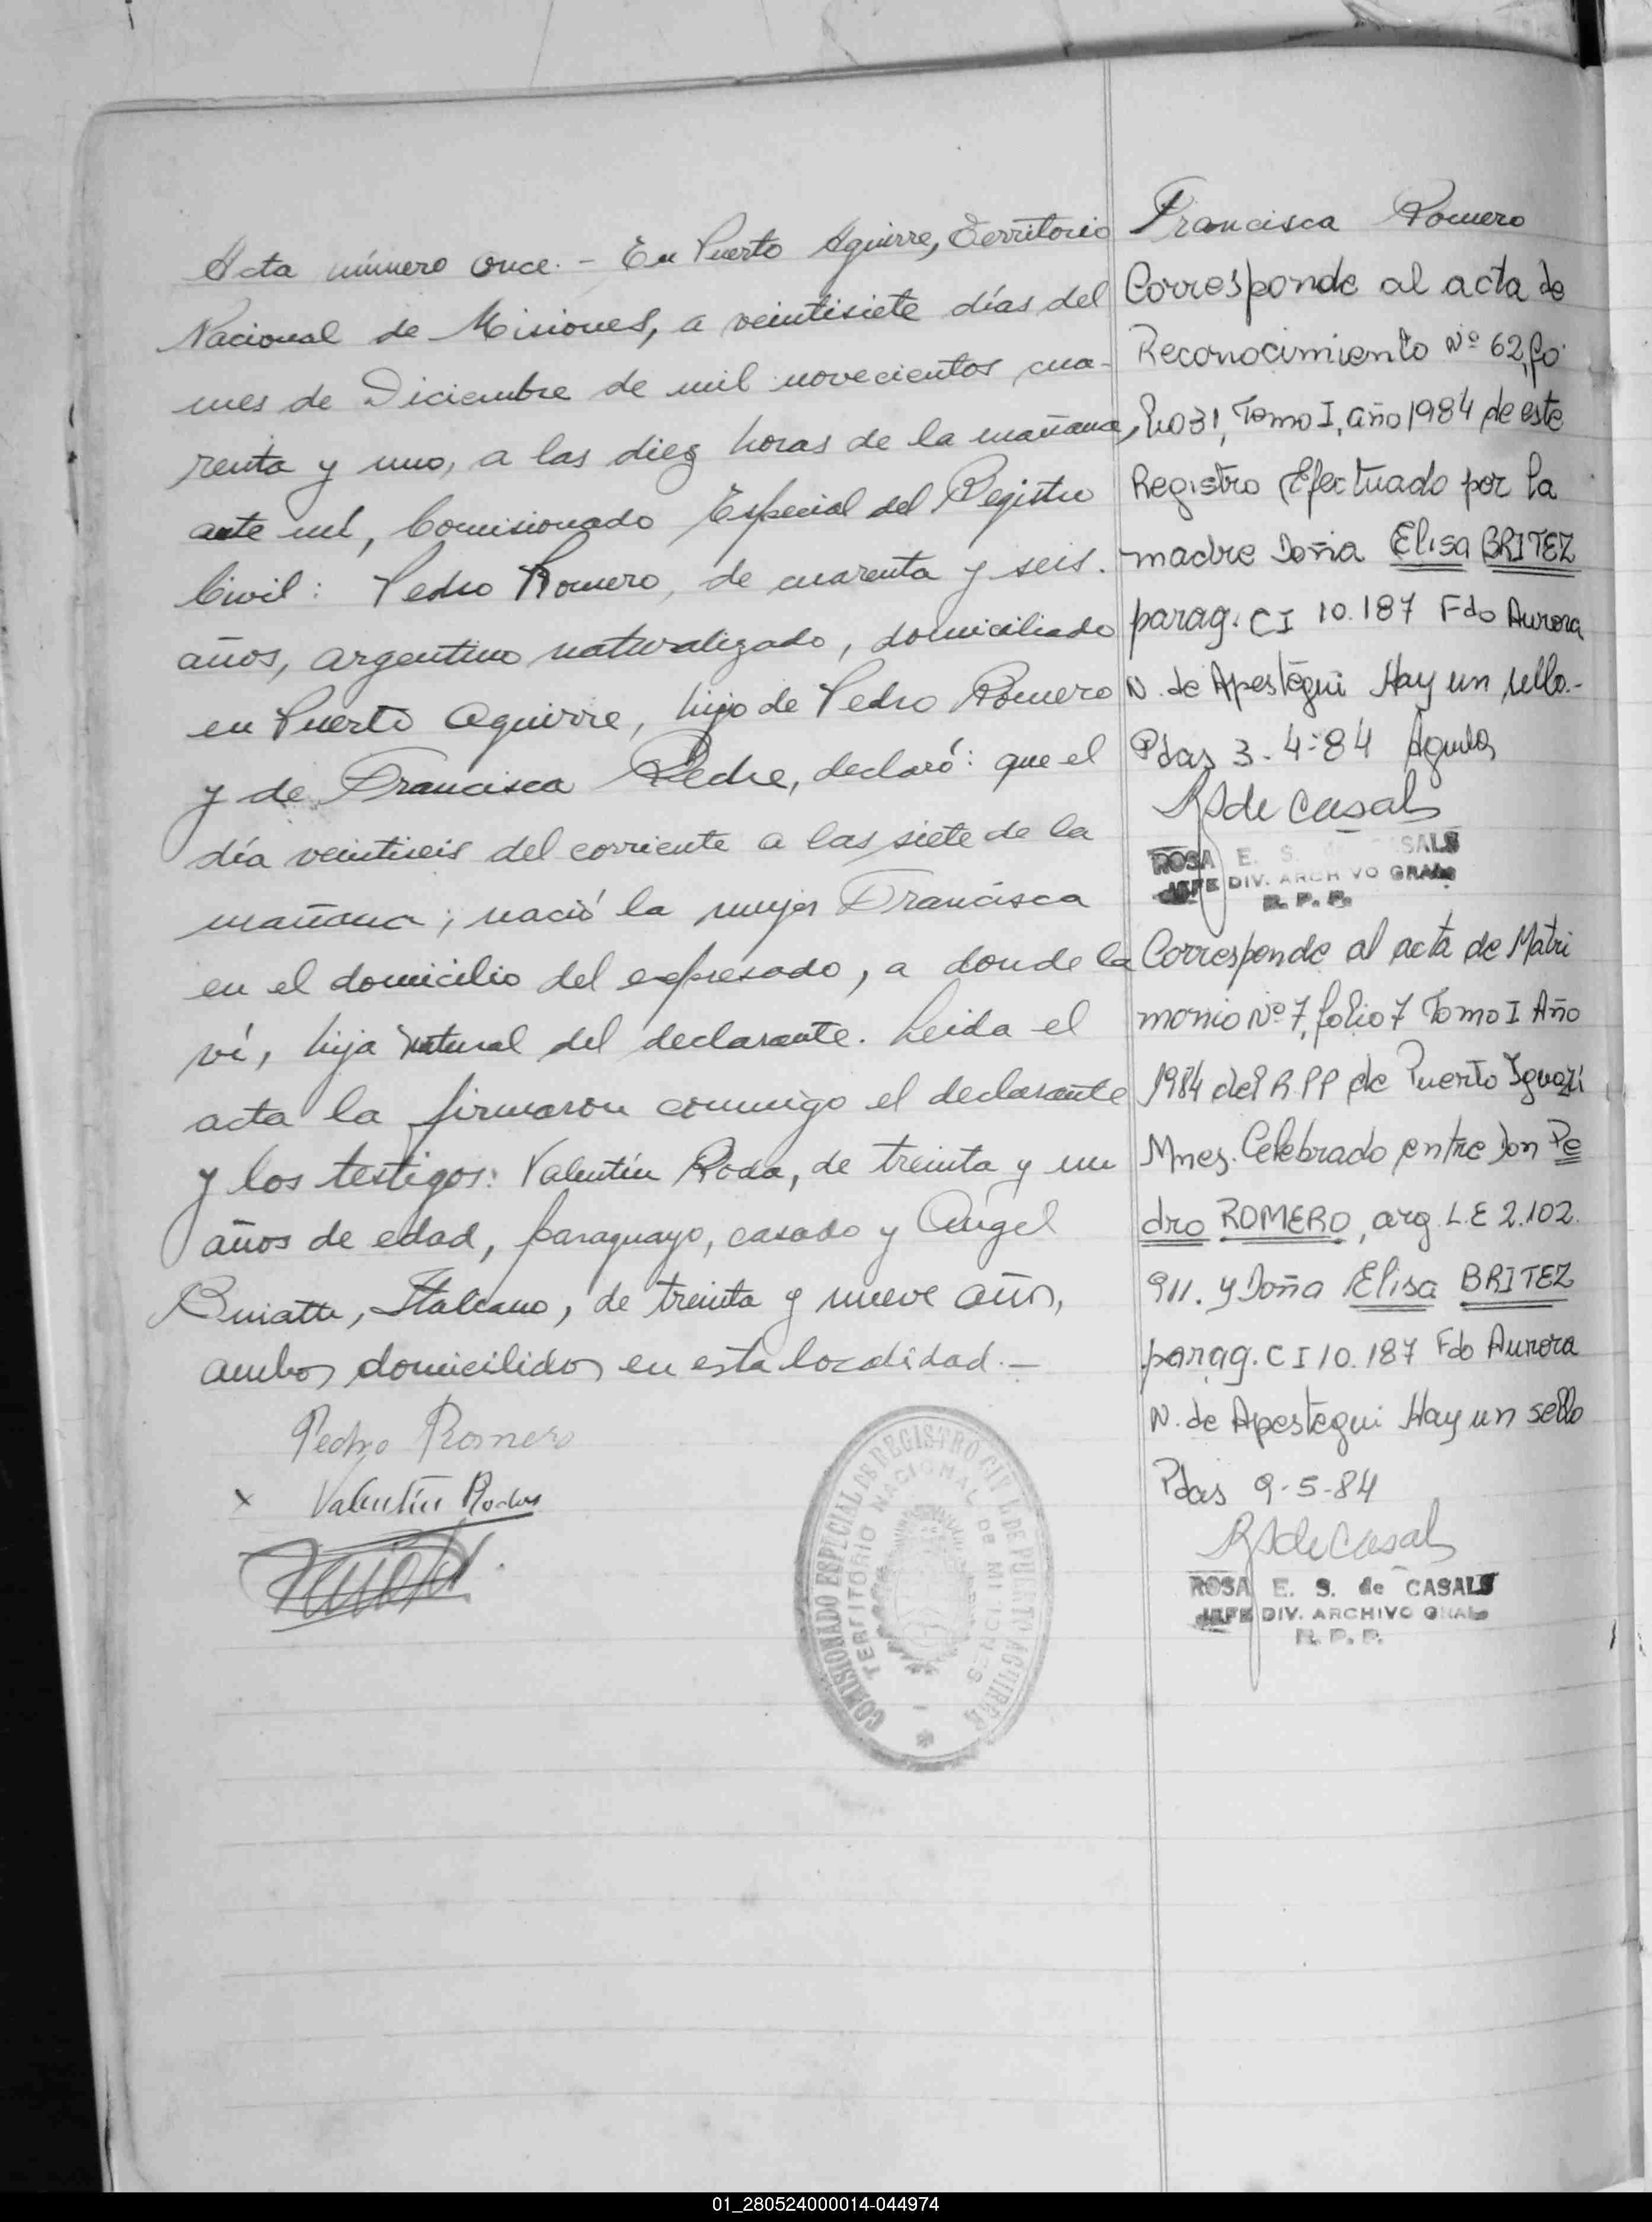 Acta número once. - En Puerto Aguirre, Territorio
Nacional de Misiones, a veintisiete días del
mes de Diciembre de mil novecientos cua-
renta y uno, a las diez horas de la mañana,
ante mí, Comisionado Especial del Registro
Civil: Pedro Romero, de cuarenta y seis.
años, argentino naturalizado, domiciliado
en Puerto Aguirre, hijo de Pedro Romero
y de Francisca, declaró: que el
día veintiseis del corriente a las siete de la
mañana; nació la mujer Francisca
en el domicilio del expresado, a donde la
ví, hija natural del declarante. Leida el
acta la firmaron conmigo el declarante
y los testigos: Valentín Roda, de treinta y un
años de edad, paraguayo, casado y Angel
Italiano, de treinta y nueve años,
ambos domicilidos en esta localidad.-
Pedro Romero
x Valentín Rodas
COMISIONADO ESPECIAL DE REGISTRO CIVIL DE PUERTO AGUIRRE
TERRITORIO NACIONAL DE MISIONES
Francisca Romero
Corresponde al acta de
Reconocimiento Nº 62, fo
lio 31, Tomo I, año 1984 de este
Registro Efectuado por la
madre Doña Elisa BRITEZ
parag. CI 10.187 Fdo Aurora
N. de Apestegui Hay un sello.-
Pdas 3-4-84
RS de Casals
ROSA E. S. de CASALS
JEFE DIV. ARCHIVO GRAL
R. P. P.
Corresponde al acta de Matri
monio Nº 7, folio 7 Tomo I Año
1984 del R.P.P de Puerto Iguazú
Mnes. Celebrado entre Don Pe
dro ROMERO, arg. L.E 2.102.
911. y Doña Elisa BRITEZ
parag. C I 10.187 Fdo Aurora
N. de Apestegui Hay un sello
Pdas 9-5-84
RS de Casals
ROSA E. S. de CASALS
JEFE DIV. ARCHIVO GRAL
R. P. P.
01_280524000014-044974